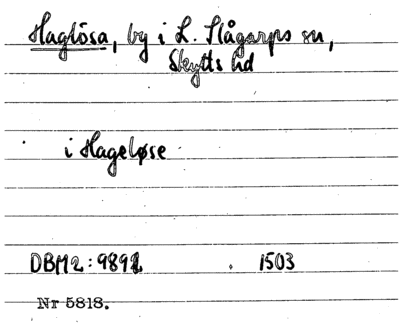 Haglösa, by i L. Slågarps sn,
Skytts hd
i Hageløse
DBM2:9891 1503
Nr 5818.